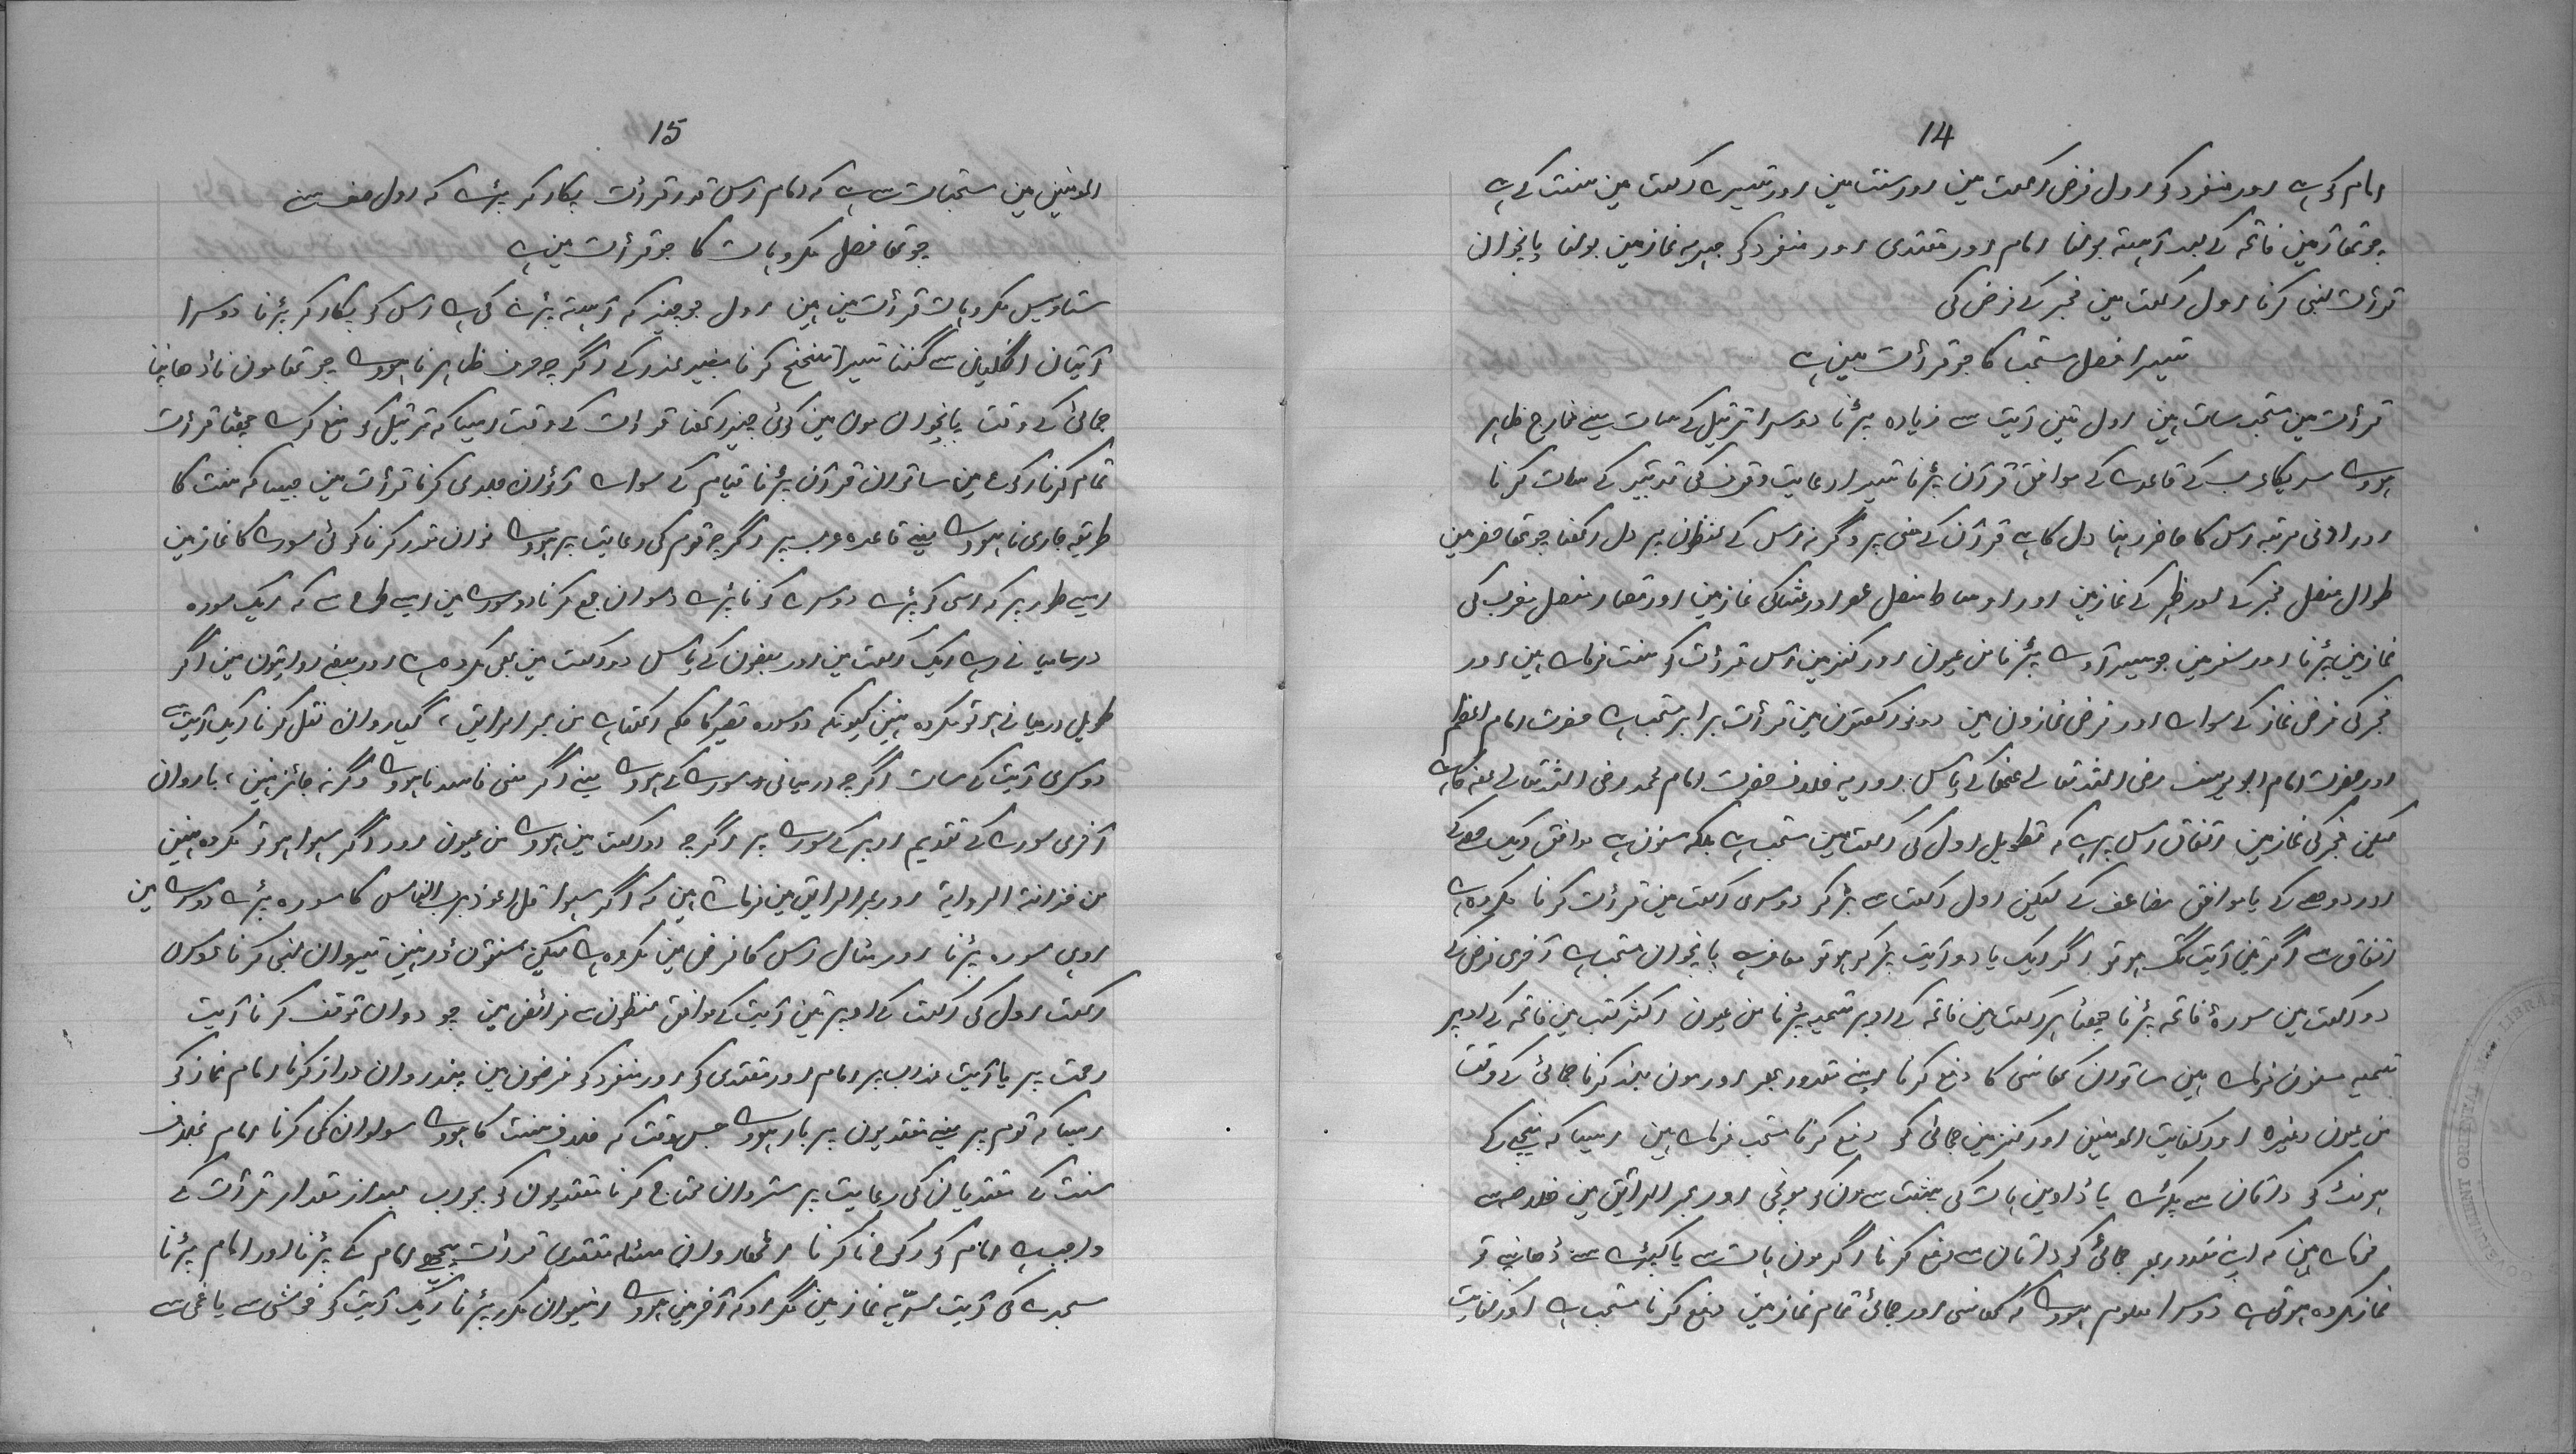 14
امام کو ہے اور منفرد کو اول فرض رکعت مین اور سنت مین اور تیسرے رکعت مین سنت کے ہے
چوتھا آمین فاتحہ کے بعد آہستہ بولنا امام اور مقتدی اور منفرد کو جہریہ نماز مین بولنا پانچوان
قرأت لنبی کرنا اول رکعت مین فجر کے فرض کی
تیسرا فصل مستحب کا جو قرأت مین ہے
قرأت مین مستحب سات ہین اول تین آیت سے زیادہ پڑنا دوسرا ترتیل کے سات یعنے مخارج ظاہر
ہووے سریکا عرب کے قاعدے کے موافق قرآن پڑنا تیسرا رعایت وقوف کی تدبیر کے سات کرنا
اور ادنی مرتبہ اس کا حاضر رہنا دل کا ہے قرآن کے معنی پر وگرنہ اس کے لفظون پر دل رکھنا چوتھا حضر مین
طوال مفصل فجر کے اور ظہر کے نماز مین اور اوساط مفصل عصر اور عشا کی نماز مین اور قصار مفصل مغرب کی
نماز مین پڑنا اور سفر مین جو میسر آوے پڑنا من عیون اور کنز مین اس قرأت کو سنت فرماے ہین اور
فجر کی فرض نماز کے سواے اور فرض نمازون مین دونو رکعتون مین قرأت برابر مستحب ہے حضرت امام اعظم
اور حضرت امام ابو یوسف رضی اللہ تعالے عنھما کے پاس اور یہ خلاف حضرت امام محمد رضی اللہ تعالے عنہ کا ہے
لیکن فجر کی نماز مین اتفاق اس پر ہے کہ تطویل اول کی رکعت مین مستحب ہے بلکہ مسنون ہے موافق ایک حصے کے
اور دو حصے کے یا موافق مضاعف کے لیکن اول رکعت سے بڑکر دوسری رکعت مین قرأت کرنا مکروہ ہے
اتفاق سے اگر تین آیت تک ہو تو اگر ایک یا دو آیت بڑکر ہو تو معاف ہے پانچوان مستحب ہے آخری فرض کے
دو رکعت مین سورۂ فاتحہ پڑنا چھٹا ہر رکعت مین فاتحہ کے اوپر تسمیہ پڑنا من عیون اکثر کتب مین فاتحہ کے اوپر
تسمیہ مسنون فرماے ہین ساتوان کھانسی کا دفع کرنا اپنے مقدور بھر اور مون بند کرنا جمائی کے وقت
من عیون وغیرہ اور کفایت المومنین اور کنز مین جمائی کو دفع کرنا مستحب فرماے ہین ایسا کہ نیچے کے
ہونٹ کو داتان سے پکڑے یا ڈاوین ہات کی پیٹ سے مون کو پونچی اور بحر الرائق مین خلاصہ سے
فرماے ہین کہ اپنے مقدور بھر جمائی کو داتان سے دفع کرنا اگر مون ہات سے یا کپڑے سے ڈھانپے تو
نماز مکروہ ہوتی ہے دوسرا معلوم ہووے کہ کھانسی اور جمائی تمام نماز مین دفع کرنا مستحب ہے اور کفایت
15
المومنین مین مستحبات سے ہے کہ امام اس قدر قرأت پکار کر پڑے کہ اول صف سنے
چوتھا فصل مکروہات کا جو قرأت مین ہے
ستاویس مکروہات قرأت مین ہین اول جو چیز کہ آہستہ پڑنے کی ہے اس کو پکار کر پڑنا دوسرا
آیتان انگلیان سے گننا تیسرا تنحنح کرنا بغیر عذر کے اگر چہ حرف ظاہر نا ہووے چوتھا مون نا ڈھانپنا
جمائی کے وقت پانچوان مون مین کوئی چیز رکھنا قرأت کے وقت ایسا کہ ترتیل کو منع کرے چھٹا قرأت
تمام کرنا رکوع مین ساتوان قرآن پڑنا قیام کے سواے آٹھوان جلدی کرنا قرأت مین جیسا کہ سنت کا
طریقہ جاری نا ہووے یعنے قاعدہ عرب پر اگر چہ قوم کی رعایت پر ہووے نوان مقرر کرنا کوئی سورے کا نماز مین
ایسے طور پر کہ اسی کو پڑے دوسرے کو نا پڑے دسوان جمع کرنا دو سورے مین ایسے طرح سے کہ ایک سورہ
درمیانے رہے ایک رکعت مین اور بعضون کے پاس دو رکعت مین بھی مکروہ ہے اور بعضے روایتون مین اگر
طویل درمیانے ہو تو مکروہ نہین کیونکہ دو سورہ قصیر کا حکم رکھتا ہے من بحر الرائق، گیاروان نقل کرنا ایک آیت سے
دوسری آیت کے سات اگر چہ درمیانی سورے کے ہووے یعنے اگر معنی فاسد نا ہووے وگرنہ جائز نہین، باروان
آخری سورے کے تقدیم اوپر کے سورے پر اگر چہ دو رکعت مین ہووے من عیون اور اگر سہوا ہو تو مکروہ نہین
من خزانة الروایة اور بحر الرائق مین فرماے ہین کہ اگر سہوا قل اعوذ برب الناس کا سورہ پڑے دوسرے مین
اوہی سورہ پڑنا اور مثال اس کا فرض مین مکروہ ہے لیکن سنتون ڈر نہین تیروان لنبی کرنا دوسری
رکعت اول کی رکعت کے اوپر تین آیت کے موافق لفظون سے فرائض مین چودوان توقف کرنا آیت
رحمت پر یا آیت عذاب پر امام اور مقتدی کو اور منفرد کو فرضون مین پندروان دراز کرنا امام نماز کو
ایسا کہ قوم پر یعنے مقتدیون پر بار ہووے جس وقت کہ خلاف سنت کا ہووے سولوان کمی کرنا امام بخلاف
سنت کے مقتدیان کی رعایت پر ستروان محتاج کرنا مقتدیون کو بجواب بعد از مقدار قرأت کے
واجب ہے امام کو رکوع نا کرنا اٹھاروان مسئلہ مقتدی قرأت پیچھے امام کے پڑنا اور امام پڑنا
سجدے کی آیت سرّیہ نماز مین مگر او کہ آخر مین ہووے انیسوان مکرر پڑنا ایک آیت کو خوشی سے یا غمی سے